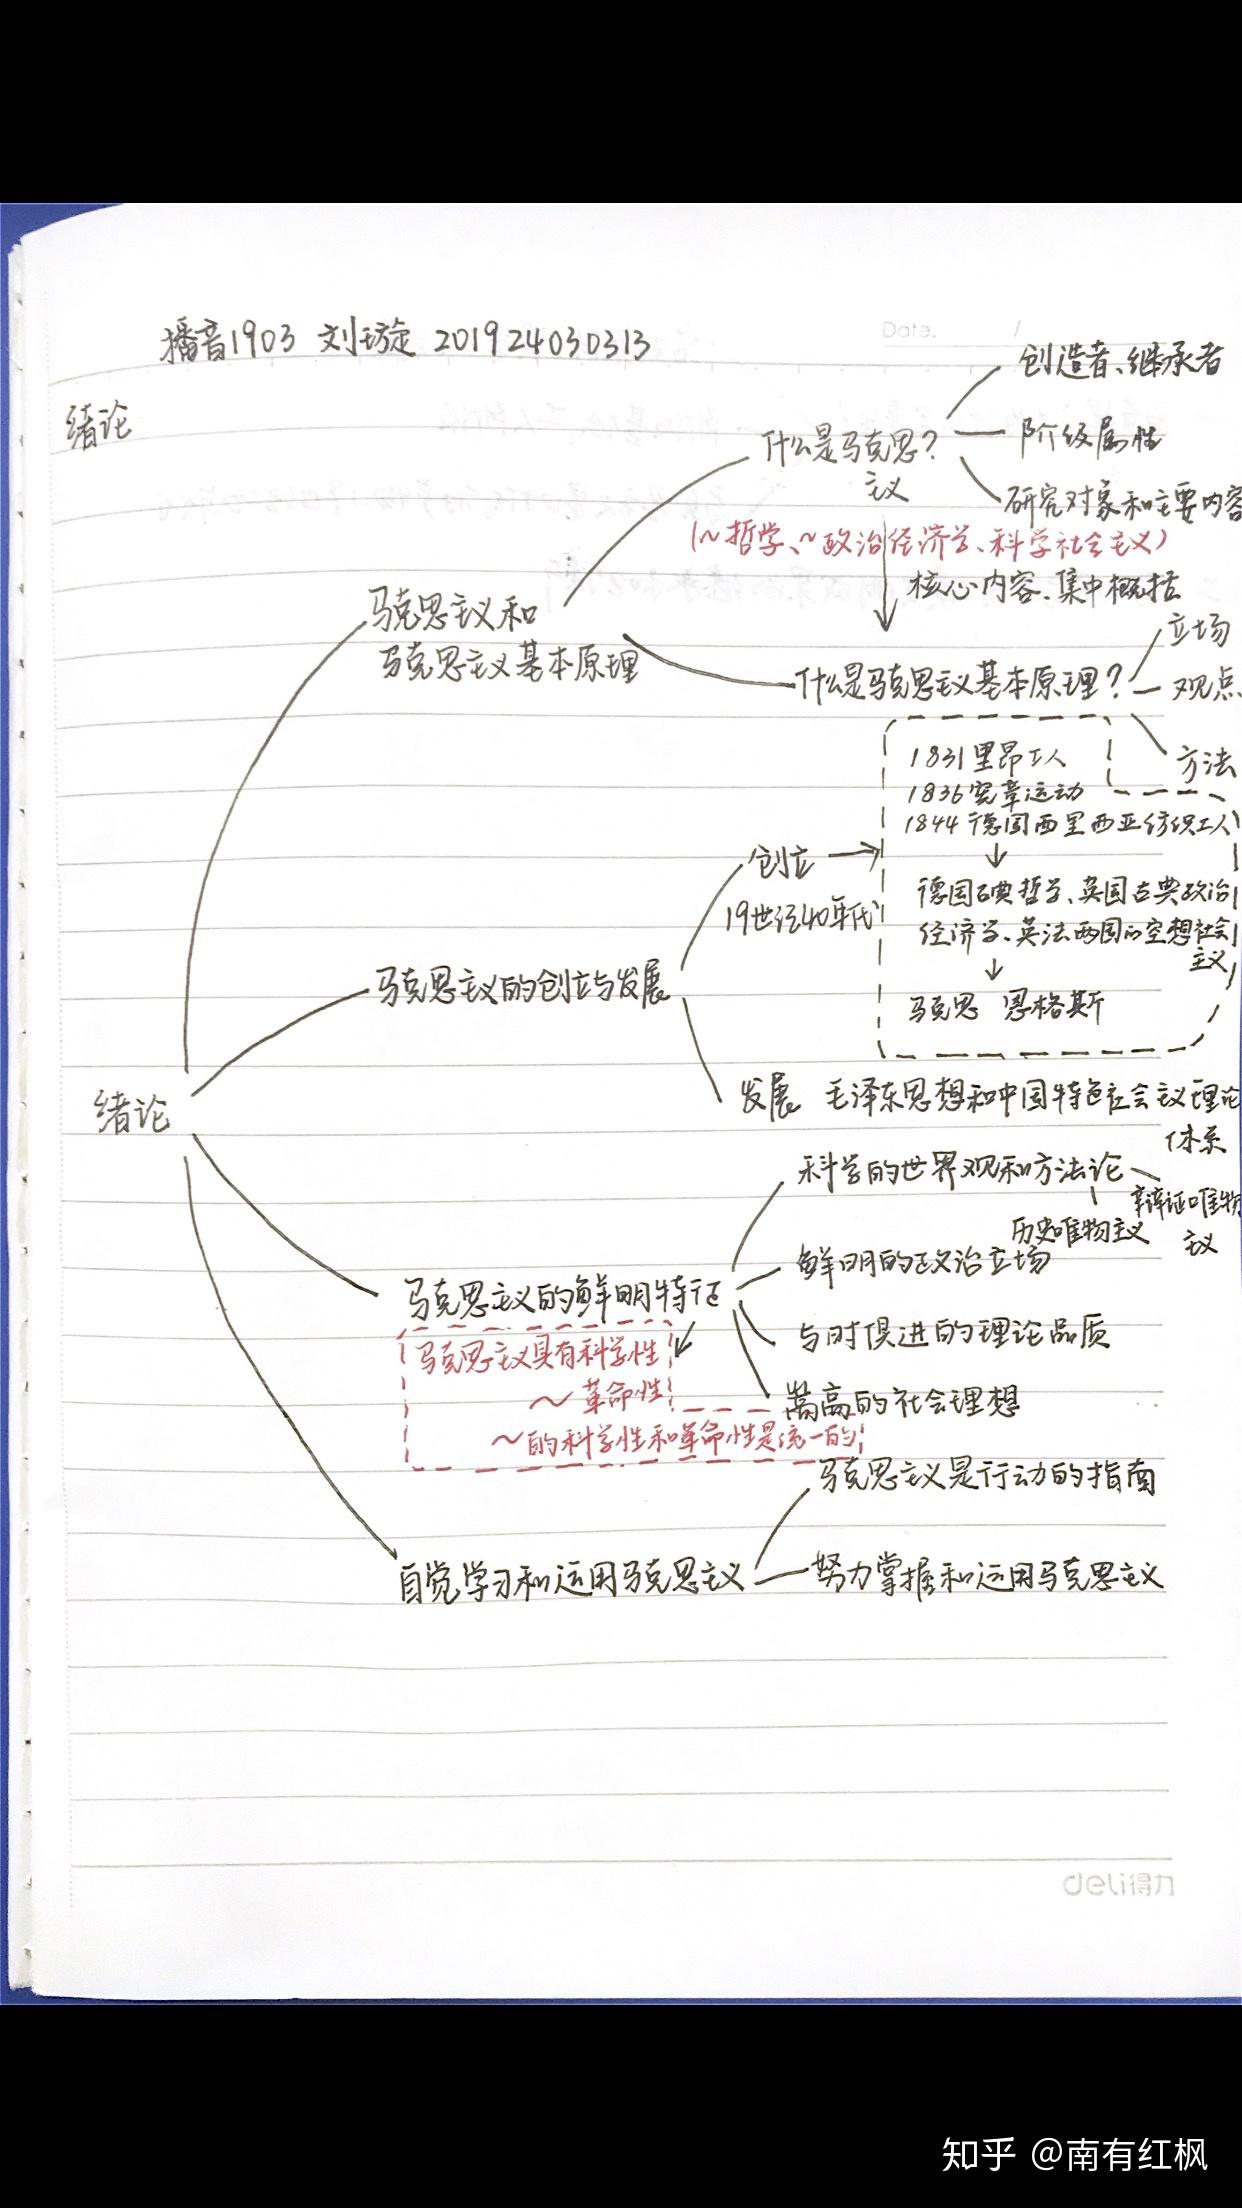 播音1903 刘璇 201924030313
Date. /
绪论
创造者、继承者
什么是马克思?
主义
阶级属性
研究对象和主要内容
(~哲学、~政治经济学、科学社会主义)
核心内容、集中概括
马克思主义和
马克思主义基本原理
什么是马克思主义基本原理?
立场
观点
方法
1831里昂工人
1836宪章运动
1844德国西里西亚纺织工人
创立
19世纪40年代
德国古典哲学、英国古典政治
经济学、英法两国的空想社会
主义
马克思 恩格斯
马克思主义的创立与发展
发展 毛泽东思想和中国特色社会主义理论
体系
绪论
科学的世界观和方法论
辩证唯物
主义
历史唯物主义
鲜明的政治立场
马克思主义的鲜明特征
与时俱进的理论品质
崇高的社会理想
马克思主义具有科学性
~革命性
~的科学性和革命性是统一的
马克思主义是行动的指南
自觉学习和运用马克思主义
努力掌握和运用马克思主义
deli得力
知乎 @南有红枫